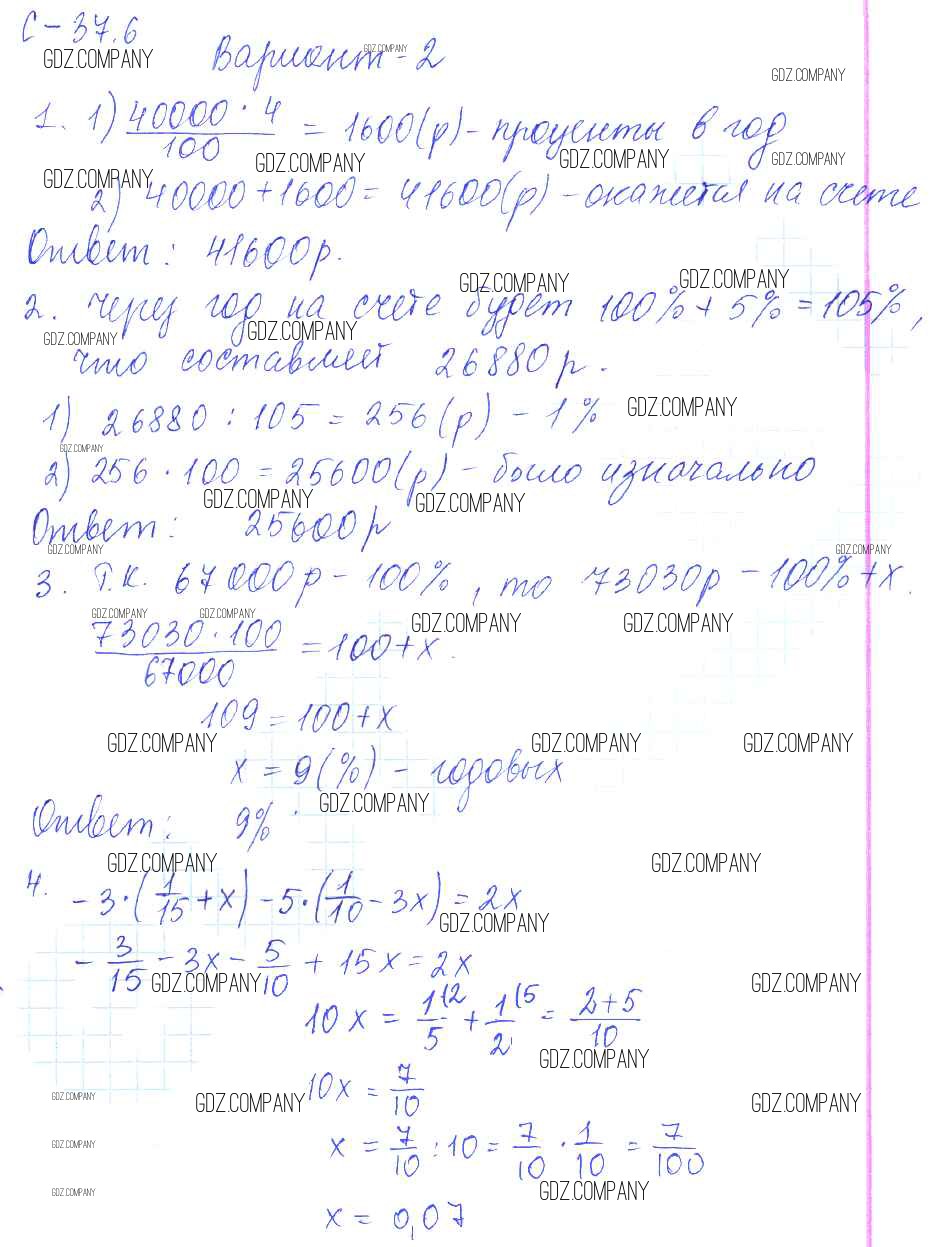 С-37.6
GDZ.COMPANY
Вариант-2
GDZ.COMPANY
GDZ.COMPANY
1. 1) 40000·4/100 = 1600(р)-проценты в год
GDZ.COMPANY GDZ.COMPANY GDZ.COMPANY
GDZ.COMPANY
2) 40000+1600=41600(р)-окажется на счете
Ответ: 41600р.
GDZ.COMPANY GDZ.COMPANY
2. Через год на счете будет 100%+5%=105%,
GDZ.COMPANY GDZ.COMPANY
что составляет 26880р.
1) 26880:105=256(р)-1% GDZ.COMPANY
GDZ.COMPANY
2) 256·100=25600(р)-было изначально
GDZ.COMPANY GDZ.COMPANY
Ответ: 25600р
GDZ.COMPANY GDZ.COMPANY
3. Т.К. 67000р-100%, то 73030р-100%+х.
GDZ.COMPANY GDZ.COMPANY GDZ.COMPANY GDZ.COMPANY
73030·100/67000 = 100+х.
109=100+х
GDZ.COMPANY GDZ.COMPANY GDZ.COMPANY
х=9(%)-годовых
GDZ.COMPANY
Ответ: 9%
GDZ.COMPANY GDZ.COMPANY
4. -3·(1/15+х)-5·(1/10-3х)=2х
GDZ.COMPANY
-3/15-3х-5/10+15х=2х
GDZ.COMPANY GDZ.COMPANY
10х=1/5(2+1/2(5=2+5/10
GDZ.COMPANY
10х=7/10
GDZ.COMPANY GDZ.COMPANY GDZ.COMPANY
х=7/10:10=7/10·1/10=7/100
GDZ.COMPANY
GDZ.COMPANY GDZ.COMPANY
х=0,07